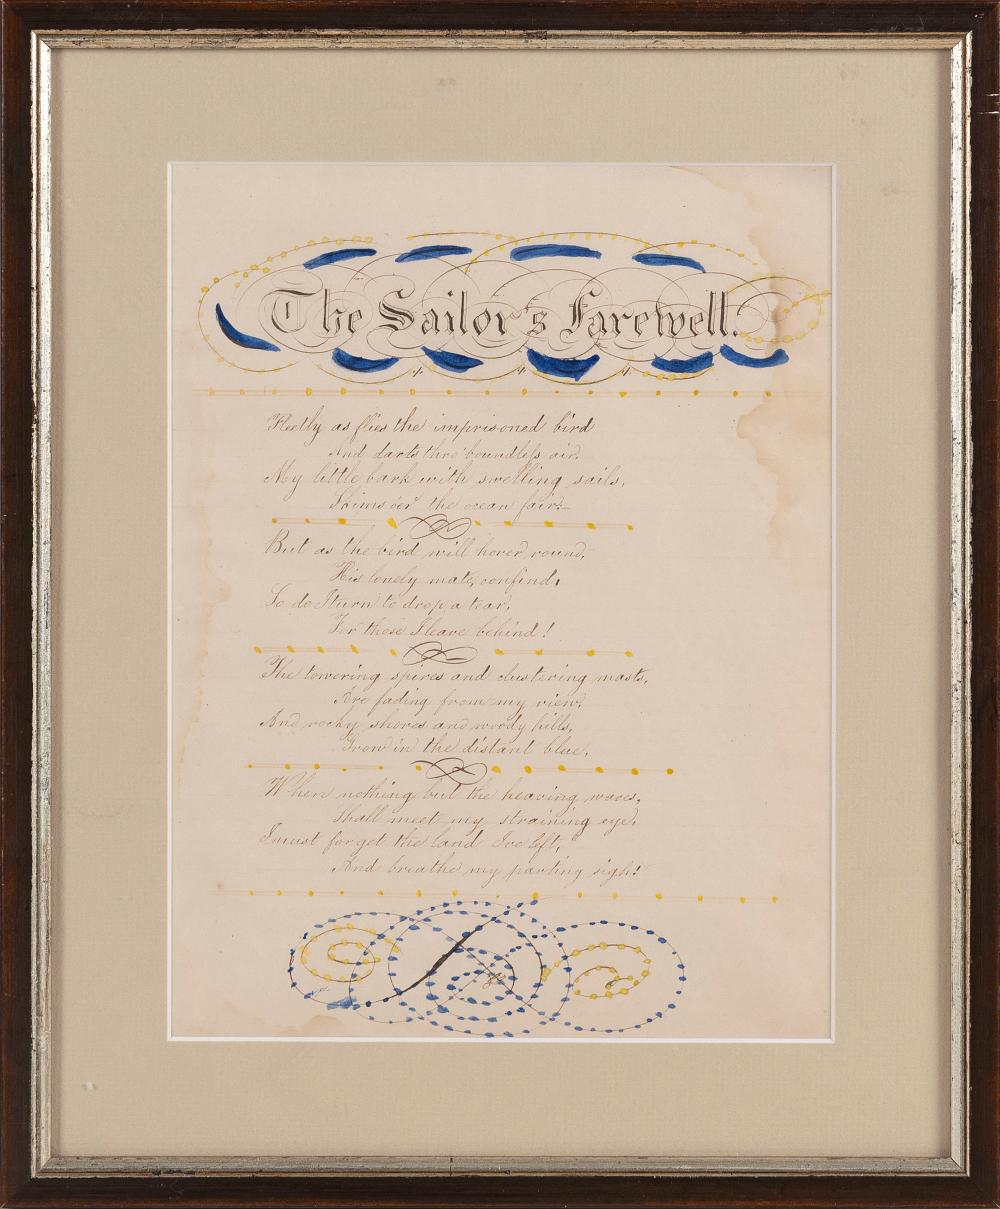 The Sailor's Farewell.
Fleetly as flies the imprisoned bird
And darts thro' boundless air.
My little bark with swelling sails,
Skims o'er the ocean fair.
But as the bird will hover round,
His lonely mate, confind,
So do I turn to drop a tear,
For those I leave behind!
The towering spires and clustering masts,
Are fading from my view.
And rocky shores and woody hills,
Grow in the distant blue,
When nothing but the heaving waves,
Shall meet my straining eye,
I must forget the land Ive left,
And breathe my parting sigh!